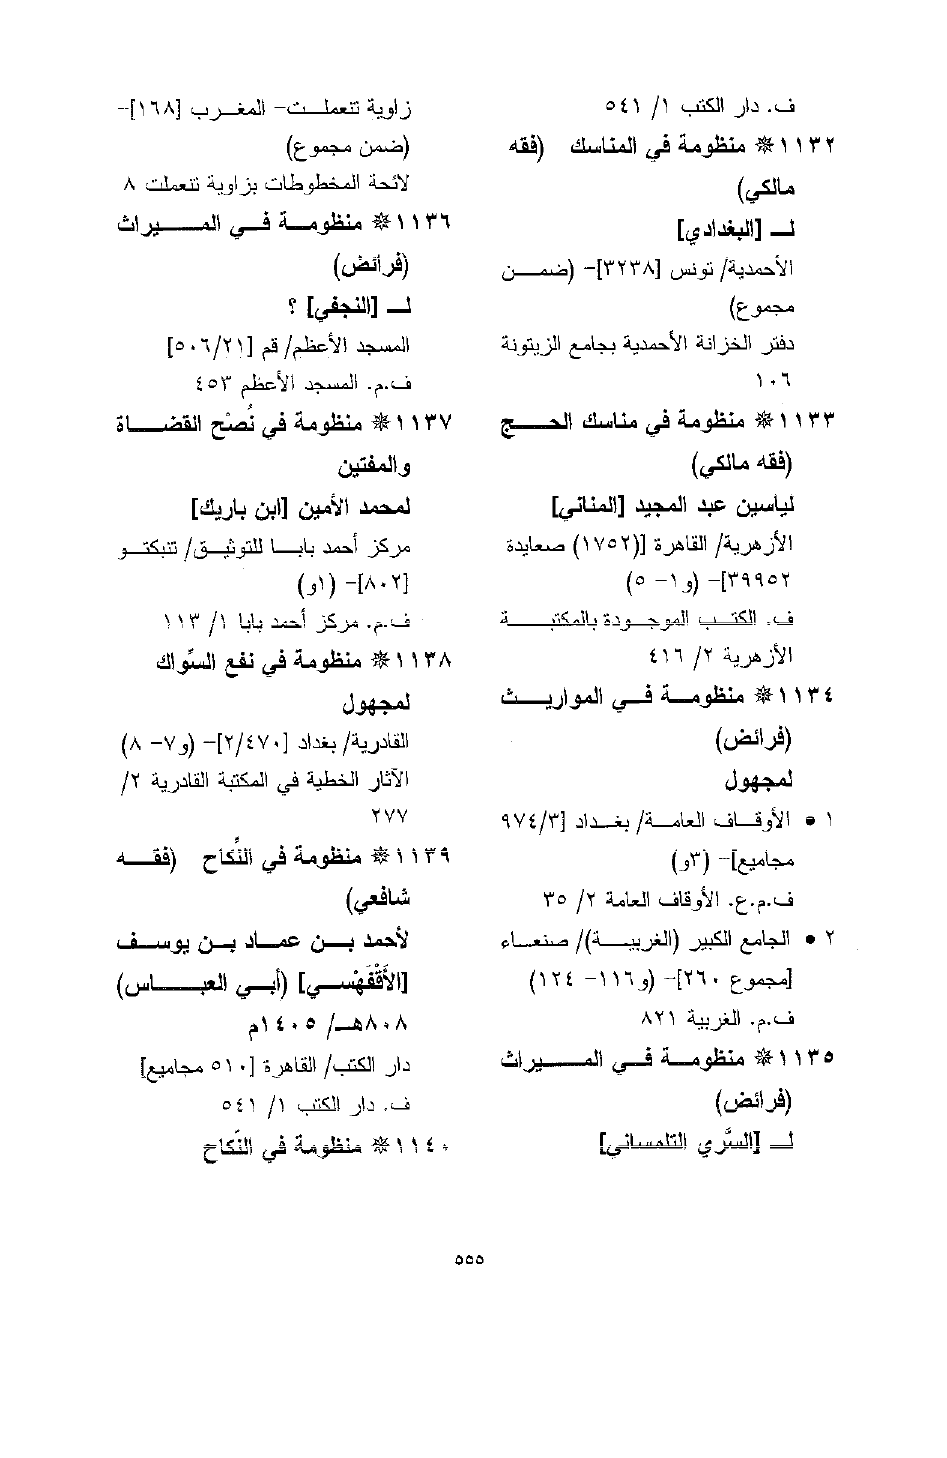 ف. دار الكتب ١/ ٥٤١
١١٣٢ ❊ منظومة في المناسك (فقه
مالكي)
لـ [البغدادي]
الأحمدية/ تونس [٣٢٣٨]- (ضمن
مجموع)
دفتر الخزانة الأحمدية بجامع الزيتونة
١٠٦
١١٣٣ ❊ منظومة في مناسك الحج
(فقه مالكي)
لياسين عبد المجيد [المناني]
الأزهرية/ القاهرة [(١٧٥٢) صعايدة
٣٩٩٥٢]- (و١- ٥)
ف. الكتب الموجودة بالمكتبة
الأزهرية ٢/ ٤١٦
١١٣٤ ❊ منظومة في المواريث
(فرائض)
لمجهول
١ • الأوقاف العامة/ بغداد [٩٧٤/٣
مجاميع]- (٣و)
ف.م.ع. الأوقاف العامة ٢/ ٣٥
٢ • الجامع الكبير (الغربية)/ صنعاء
[مجموع ٢٦٠]- (و١١٦- ١٢٤)
ف.م. الغربية ٨٢١
١١٣٥ ❊ منظومة في الميراث
(فرائض)
لـ [السَّري التلمساني]
زاوية تنعملت- المغرب [١٦٨]-
(ضمن مجموع)
لائحة المخطوطات بزاوية تنعملت ٨
١١٣٦ ❊ منظومة في الميراث
(فرائض)
لـ [النجفي] ؟
المسجد الأعظم/ قم [٥٠٦/٢١]
ف.م. المسجد الأعظم ٤٥٣
١١٣٧ ❊ منظومة في نُصْح القضاة
والمفتين
لمحمد الأمين [ابن باريك]
مركز أحمد بابا للتوثيق/ تنبكتو
[٨٠٢]- (١و)
ف.م. مركز أحمد بابا ١/ ١١٣
١١٣٨ ❊ منظومة في نفع السِّواك
لمجهول
القادرية/ بغداد [٢/٤٧٠]- (و٧- ٨)
الآثار الخطية في المكتبة القادرية ٢/
٢٧٧
١١٣٩ ❊ منظومة في النِّكاح (فقه
شافعي)
لأحمد بن عماد بن يوسف
[الأَقْفَهْسي] (أبي العباس)
٨٠٨هـ/ ١٤٠٥م
دار الكتب/ القاهرة [٥١٠ مجاميع]
ف. دار الكتب ١/ ٥٤١
١١٤٠ ❊ منظومة في النِّكاح
٥٥٥